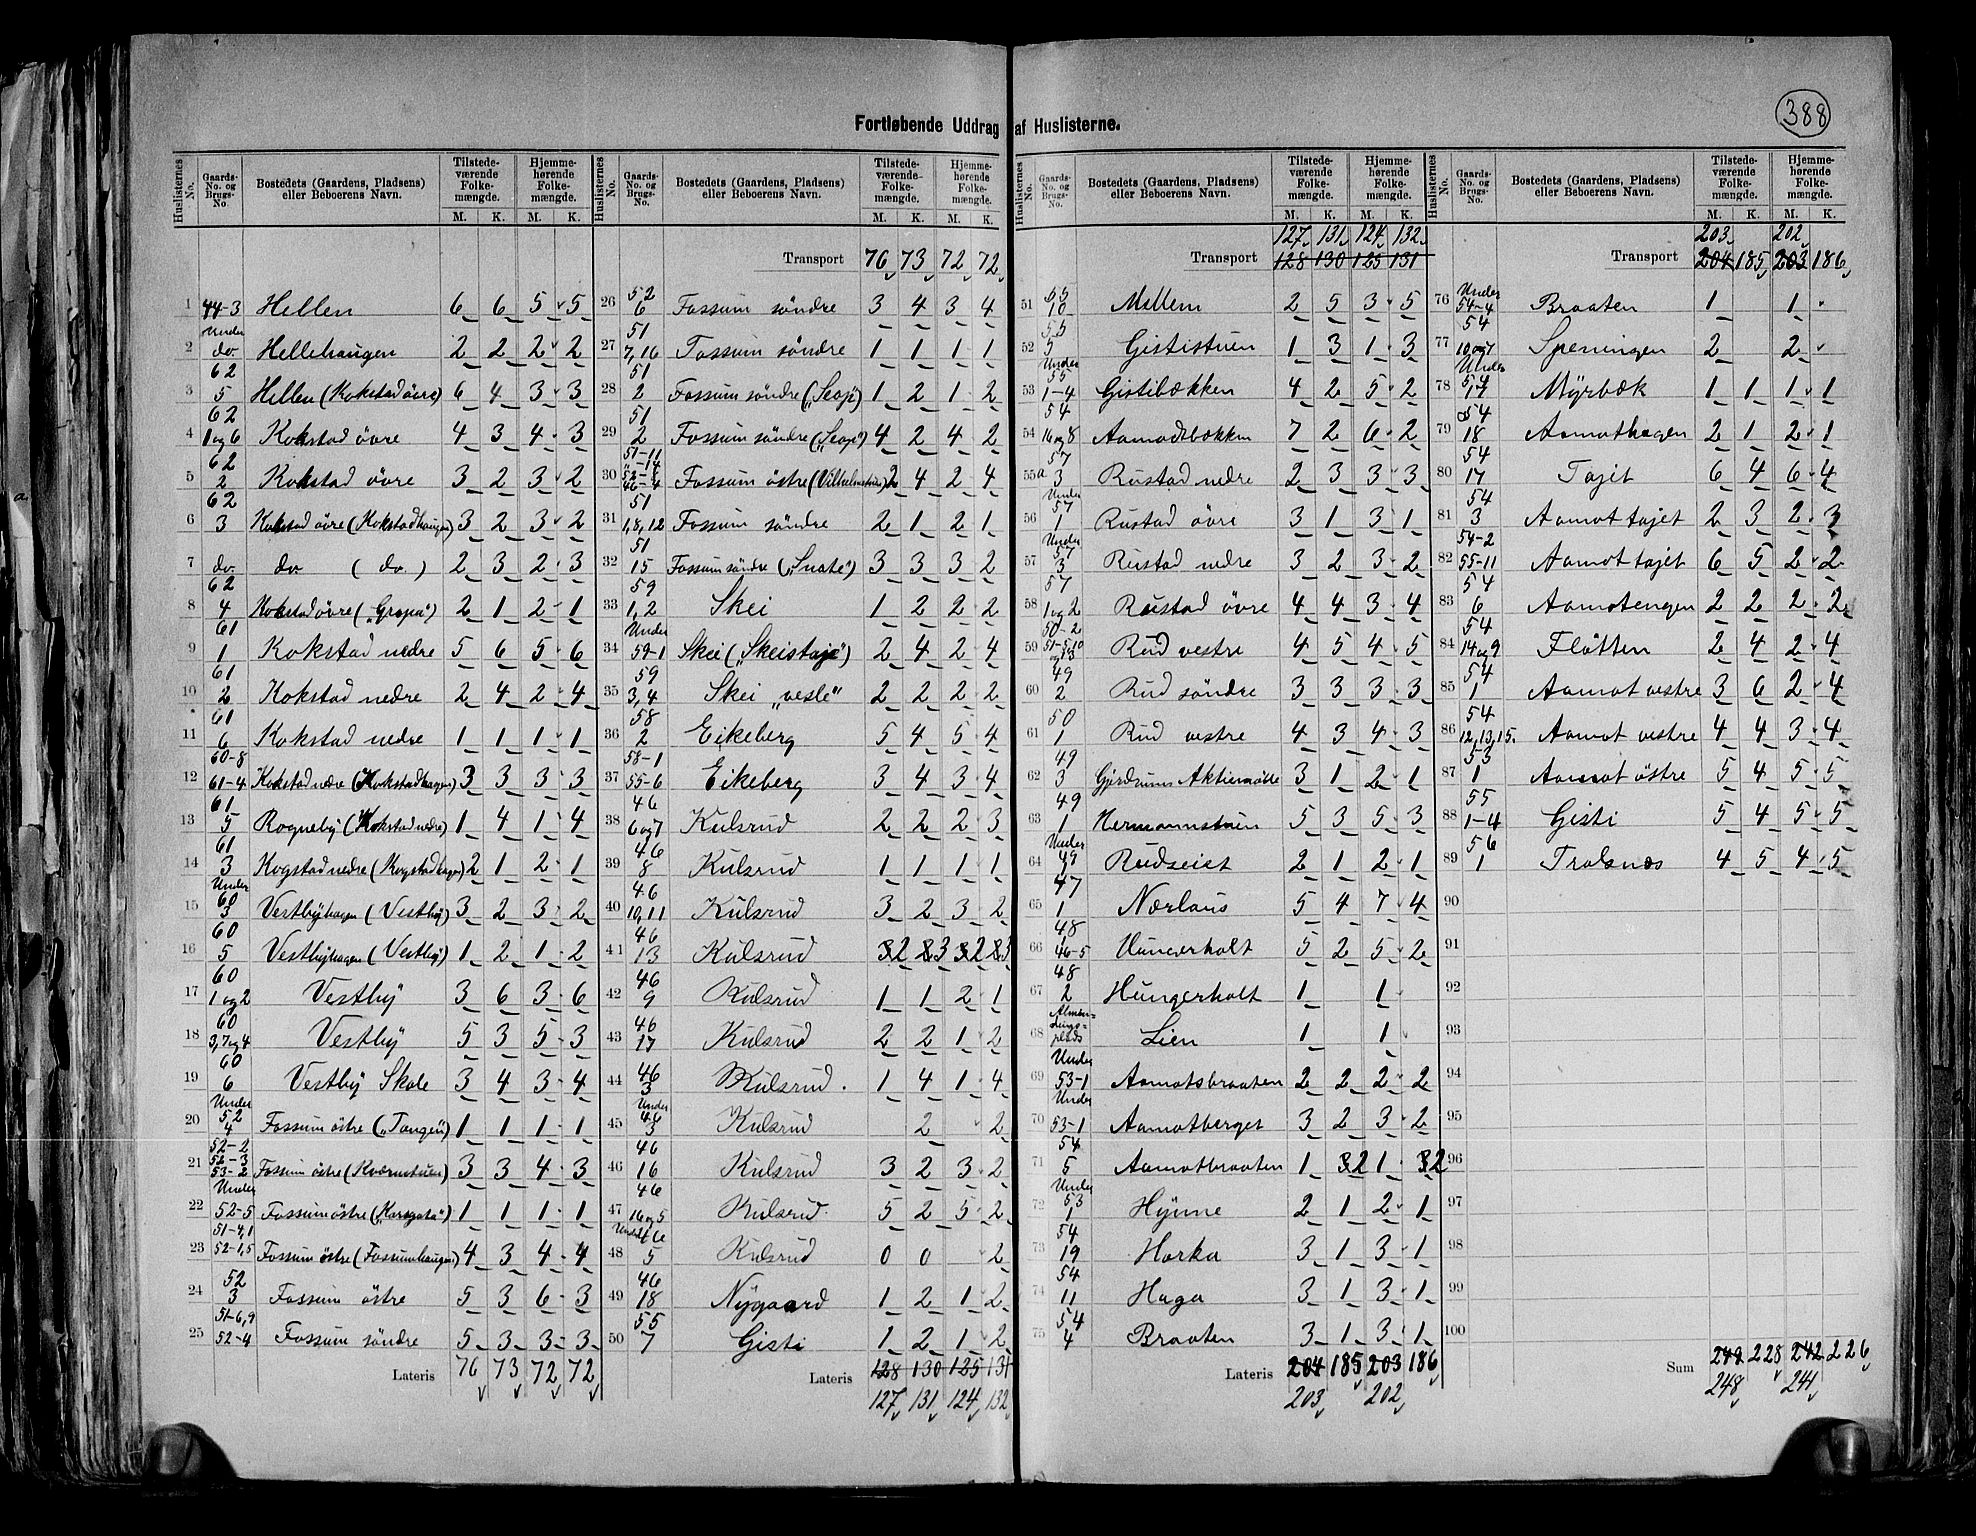 388
Fortløbende Uddrag af Huslisterne.
Huslisternes No. | Gaards-No. og Brugs-No. | Bostedets (Gaardens, Pladsens) eller Beboerens Navn. | Tilstedeværende Folkemængde. M. K. | Hjemmehørende Folkemængde. M. K.
1 44-3 Hellen 6 6 5 5
2 Under do. Hellehaugen 2 2 2 2
3 62 5 Hellen (Kokstad øvre) 6 4 3 3
4 62 1 og 6 Kokstad øvre 4 3 4 3
5 62 2 Kokstad øvre 3 2 3 2
6 62 3 Kokstad øvre (Kokstadhaugen) 3 2 3 2
7 do. do. (do.) 2 3 2 3
8 62 4 Kokstad øvre („Gropa“) 2 1 2 1
9 61 1 Kokstad nedre 5 6 5 6
10 61 2 Kokstad nedre 2 4 2 4
11 61 6 Kokstad nedre 1 1 1 1
12 60-8 61-4 Kokstad nedre (Kokstadhagen) 3 3 3 3
13 61 5 Rogneby (Kokstad nedre) 1 4 1 4
14 61 3 Kogstad nedre (Kogstadhagen) 2 1 2 1
15 Under 60 3 Vestbyhagen (Vestby) 3 2 3 2
16 60 5 Vestbyhagen (Vestby) 1 2 1 2
17 60 1 og 2 Vestby 3 6 3 6
18 60 3,7 og 4 Vestby 5 3 5 3
19 60 6 Vestby Skole 3 4 3 4
20 Under 52 4 Fossum østre („Tangen“) 1 1 1 1
21 52-2 52-3 53-2 Fossum østre (Kværnstuen) 3 3 4 3
22 Under 52-5 Fossum østre („Korsgata“) 1 1 1 1
23 51-4,1 52-1,5 Fossum østre (Fossumhaugen) 4 3 4 4
24 52 3 Fossum østre 5 3 6 3
25 51-6,9 52-4 Fossum søndre 5 3 3 3
Lateris 76 73 72 72
Huslisternes No. | Gaards-No. og Brugs-No. | Bostedets (Gaardens, Pladsens) eller Beboerens Navn. | Tilstedeværende Folkemængde. M. K. | Hjemmehørende Folkemængde. M. K.
Transport 76 73 72 72
26 52 6 Fossum søndre 3 4 3 4
27 51 7,16 Fossum søndre 1 1 1 1
28 51 2 Fossum søndre („Seoje“) 1 2 1 2
29 51 2 Fossum søndre („Seoje“) 4 2 4 2
30 51-11 „-14 52-8 46-4 Fossum østre (Vilhelmstuen) 2 4 2 4
31 51 1,8,12 Fossum søndre 2 1 2 1
32 51 15 Fossum søndre („Snate“) 3 3 3 2
33 59 1,2 Skei 1 2 2 2
34 Under 59-1 Skei („Skeistaje“) 2 4 2 4
35 59 3,4 Skei „vesle“ 2 2 2 2
36 58 2 Eikeberg 5 4 5 4
37 58-1 55-6 Eikeberg 3 4 3 4
38 46 6 og 7 Kulsrud 2 2 2 3
39 46 8 Kulsrud 1 1 1 1
40 46 10,11 Kulsrud 3 2 3 2
41 46 13 Kulsrud 2 3 2 3
42 46 9 Kulsrud 1 1 2 1
43 46 17 Kulsrud 2 2 1 2
44 46 3 Kulsrud. 1 4 1 4
45 Under 46 3 Kulsrud 2 2
46 46 16 Kulsrud 3 2 3 2
47 46 16 og 5 Kulsrud. 5 2 5 2
48 Under 46 5 Kulsrud 0 0 2
49 46 18 Nygaard 1 2 1 2
50 55 7 Gisti 1 2 1 2
Lateris 128 130 125 131
127 131 124 132
Huslisternes No. | Gaards-No. og Brugs-No. | Bostedets (Gaardens, Pladsens) eller Beboerens Navn. | Tilstedeværende Folkemængde. M. K. | Hjemmehørende Folkemængde. M. K.
127 131 124 132
Transport 128 130 125 131
51 55 10 Mellem 2 5 3 5
52 55 5 Gististuen 1 3 1 3
53 Under 55 1-4 Gistibækken 4 2 5 2
54 54 16 og 8 Aamodtsbækken 7 2 6 2
55a 57 3 Rustad nedre 2 3 3 3
56 Under 57 1 Rustad øvre 3 1 3 1
57 Under 57 3 Rustad nedre 3 2 3 2
58 57 1 og 2 Rustad øvre 4 4 3 4
59 50-2 51-5,10 Rud vestre 4 5 4 5
60 49 2 Rud søndre 3 3 3 3
61 50 1 Rud vestre 4 3 4 3
62 49 3 Gjerdrums Aktiemølle 3 1 2 1
63 49 1 Hermannstuen 5 3 5 3
64 Under 49 Rudseiet 2 1 2 1
65 47 1 Nærlaus 5 4 7 4
66 48 1 46-5 Hungerholt 5 2 5 2
67 48 2 Hungerholt 1 1
68 Almenningsplads Lien 1 1
69 Under 53-1 Aamotsbraaten 2 2 2 2
70 Under 53-1 Aamotberget 3 2 3 2
71 54 5 Aamotbraaten 1 2 1 2
72 Under 53 1 Hynne 2 1 2 1
73 54 19 Horka 3 1 3 1
74 54 11 Haga 3 1 3 1
75 54 4 Braaten 3 1 3 1
Lateris 204 185 203 186
203 202
Huslisternes No. | Gaards-No. og Brugs-No. | Bostedets (Gaardens, Pladsens) eller Beboerens Navn. | Tilstedeværende Folkemængde. M. K. | Hjemmehørende Folkemængde. M. K.
203 202
Transport 204 185 203 186
76 Under 54-4 Braaten 1 1
77 54 10 og 7 Speningen 2 2
78 Under 54 Myrbæk 1 1 1 1
79 54 18 Aamothagen 2 1 2 1
80 54 17 Tajet 6 4 6 4
81 54 3 Aamottajet 2 3 2 3
82 54-2 55-11 Aamottajet 6 5 2 2
83 54 6 Aamotengen 2 2 2 2
84 54 14 og 9 Flåtten 2 4 2 4
85 54 1 Aamot vestre 3 6 2 4
86 54 12,13,15. Aamot vestre 4 4 3 4
87 53 1 Aamot østre 5 4 5 5
88 55 1-4 Gisti 5 4 5 5
89 56 1 Trolsnæs 4 5 4 5
90
91
92
93
94
95
96
97
98
99
100
Sum 249 228 242 226
248 241